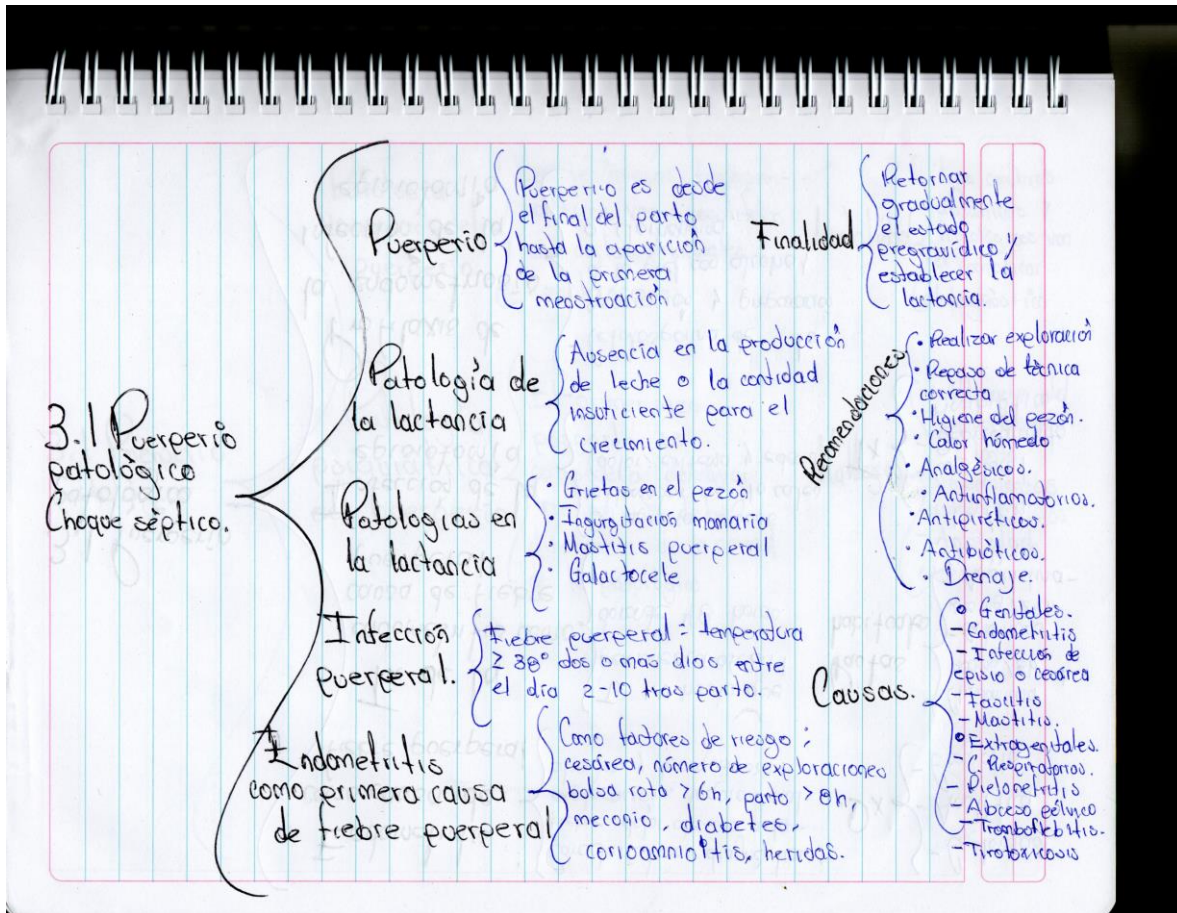 3.1 Puerperio
patològico
Choque sèptico.
Puerperio
Puerperio es desde
el final del parto
hasta la aparición
de la primera
menstruación
Finalidad
Retornar
gradualmente
el estado
pregravídico y
establecer la
lactancia.
Patología de
la lactancia
Ausencia en la producción
de leche o la cantidad
insuficiente para el
crecimiento.
Patologías en
la lactancia
· Grietas en el pezón
· Ingurgitación mamaria
· Mastitis puerperal
· Galactocele
Recomendaciones
· Realizar exploración
· Repaso de tècnica
correcta
· Higiene del pezón.
· Calor húmedo
· Analgèsicos.
· Antiinflamatorios.
· Antipirèticos.
· Antibiòticos.
· Drenaje.
Infección
puerperal.
Fiebre puerperal = temperatura
≥ 38° dos o más días entre
el día 2-10 tras parto.
Causas.
• Genitales.
- Endometritis
- Infección de
episio o cesárea
- Fascitis
- Mastitis.
• Extragenitales.
- C. Respiratorios.
- Pielonefritis
- Absceso pélvico
- Tromboflebitis.
- Tirotoxicosis
Endometritis
como primera causa
de fiebre puerperal
Como factores de riesgo:
cesárea, número de exploraciones
bolsa rota > 6h, parto > 8h,
meconio, diabetes,
corioamniotitis, heridas.